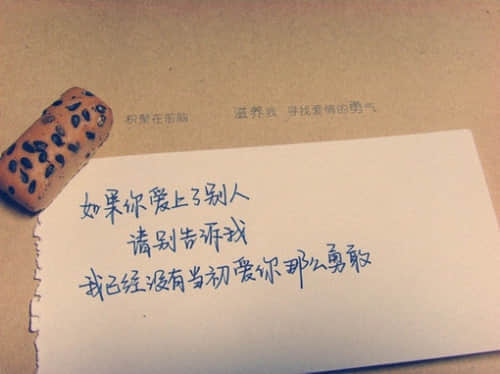 积聚在前脑 滋养我 寻找爱情的勇气
如果你爱上了别人
请别告诉我
我已经没有当初爱你那么勇敢